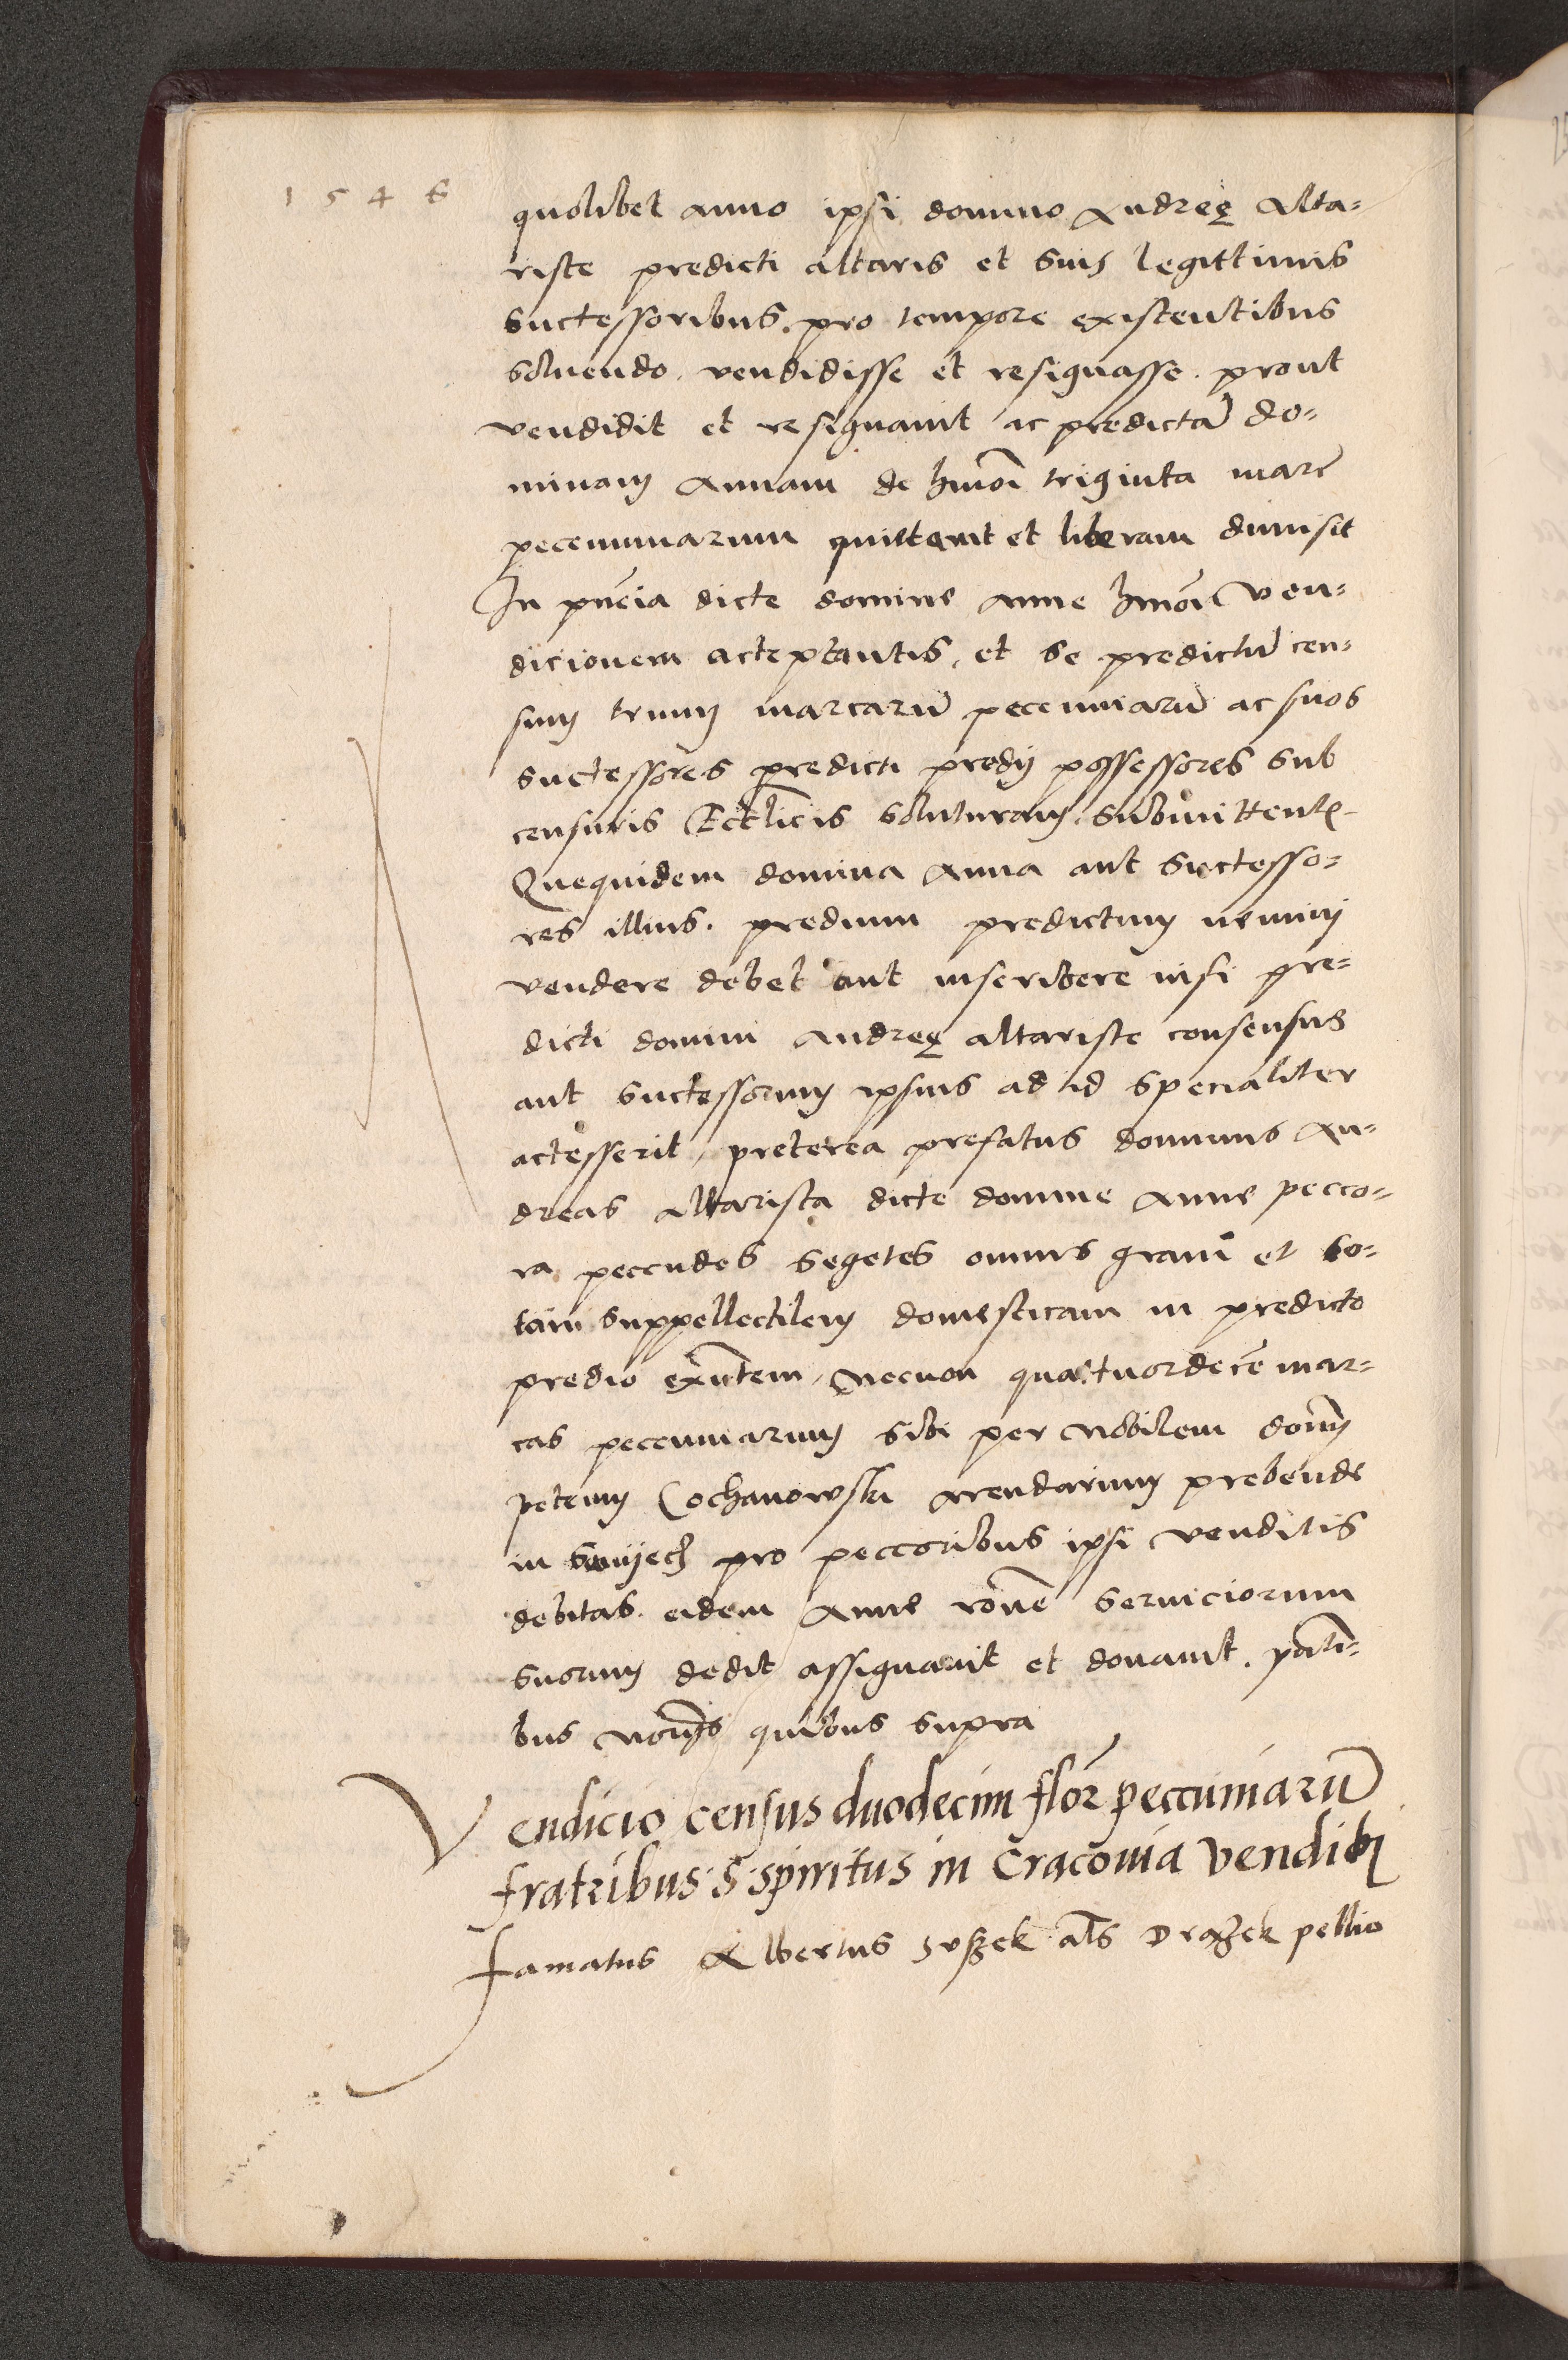 1546
quolibet anno ipsi domino Andreę Alta=
riste predicti altaris et suis legittimis
successoribus. pro tempore existentibus
soluendo. vendidisse et resignasse. prout
vendidit et resignauit ac predictā do=
minam Annam de hmōi triginta marc̄
peccuniarum quittauit et liberam dimisit
In pn̄cia dicte domine Anne hmōi ven=
dicionem acceptantis, et se predictū cen=
sum trium marcarū peccuniarū ac suos
successores predicti predij possessores sub
censuris Eccl̄icis soluturam. submitten̄t
Quequidem domina Anna aut successo=
res illius. predium predictum nemini
vendere debet aut inscribere nisi pre=
dicti domini Andreę altariste consensus
aut successorum ipsius ad id specialiter
accesserit, preterea prefatus dominus An=
dreas altarista dicte domine Anne pecco=
ra peccudes segetes omnis grani et to=
tam suppellectilem domesticam in predicto
predio exn̄tem, Necnon quattuordecē mar=
cas peccuniarum sibi per Nobilem dom̄
petrum Cochanowski arendarium prebende
in pro peccoribus ipsi venditis
debitas. eidem Anne rōne seruiciorum
suorum dedit assignauit et donauit. pn̄ti=
bus quibus supra
Vendicio census duodecim flor̄ peccuniarū
fratribus. S. spiritus in Cracouia vendit
famatus Albertus als pellio